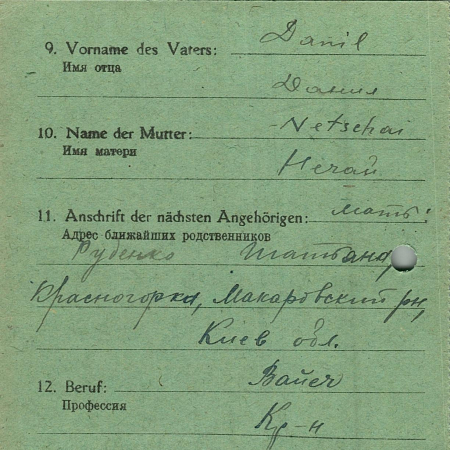 9. Vorname des Vaters: Danil
Имя отца
Данил
10. Name der Mutter: Netschai
Имя матери
Нечай
11. Anschrift der nächsten Angehörigen: мать:
Адрес ближайших родственников
Руденко Татьана
Красногорка, Макаровский рн,
Киев обл.
12. Beruf: Bauer
Профессия
Кр-н